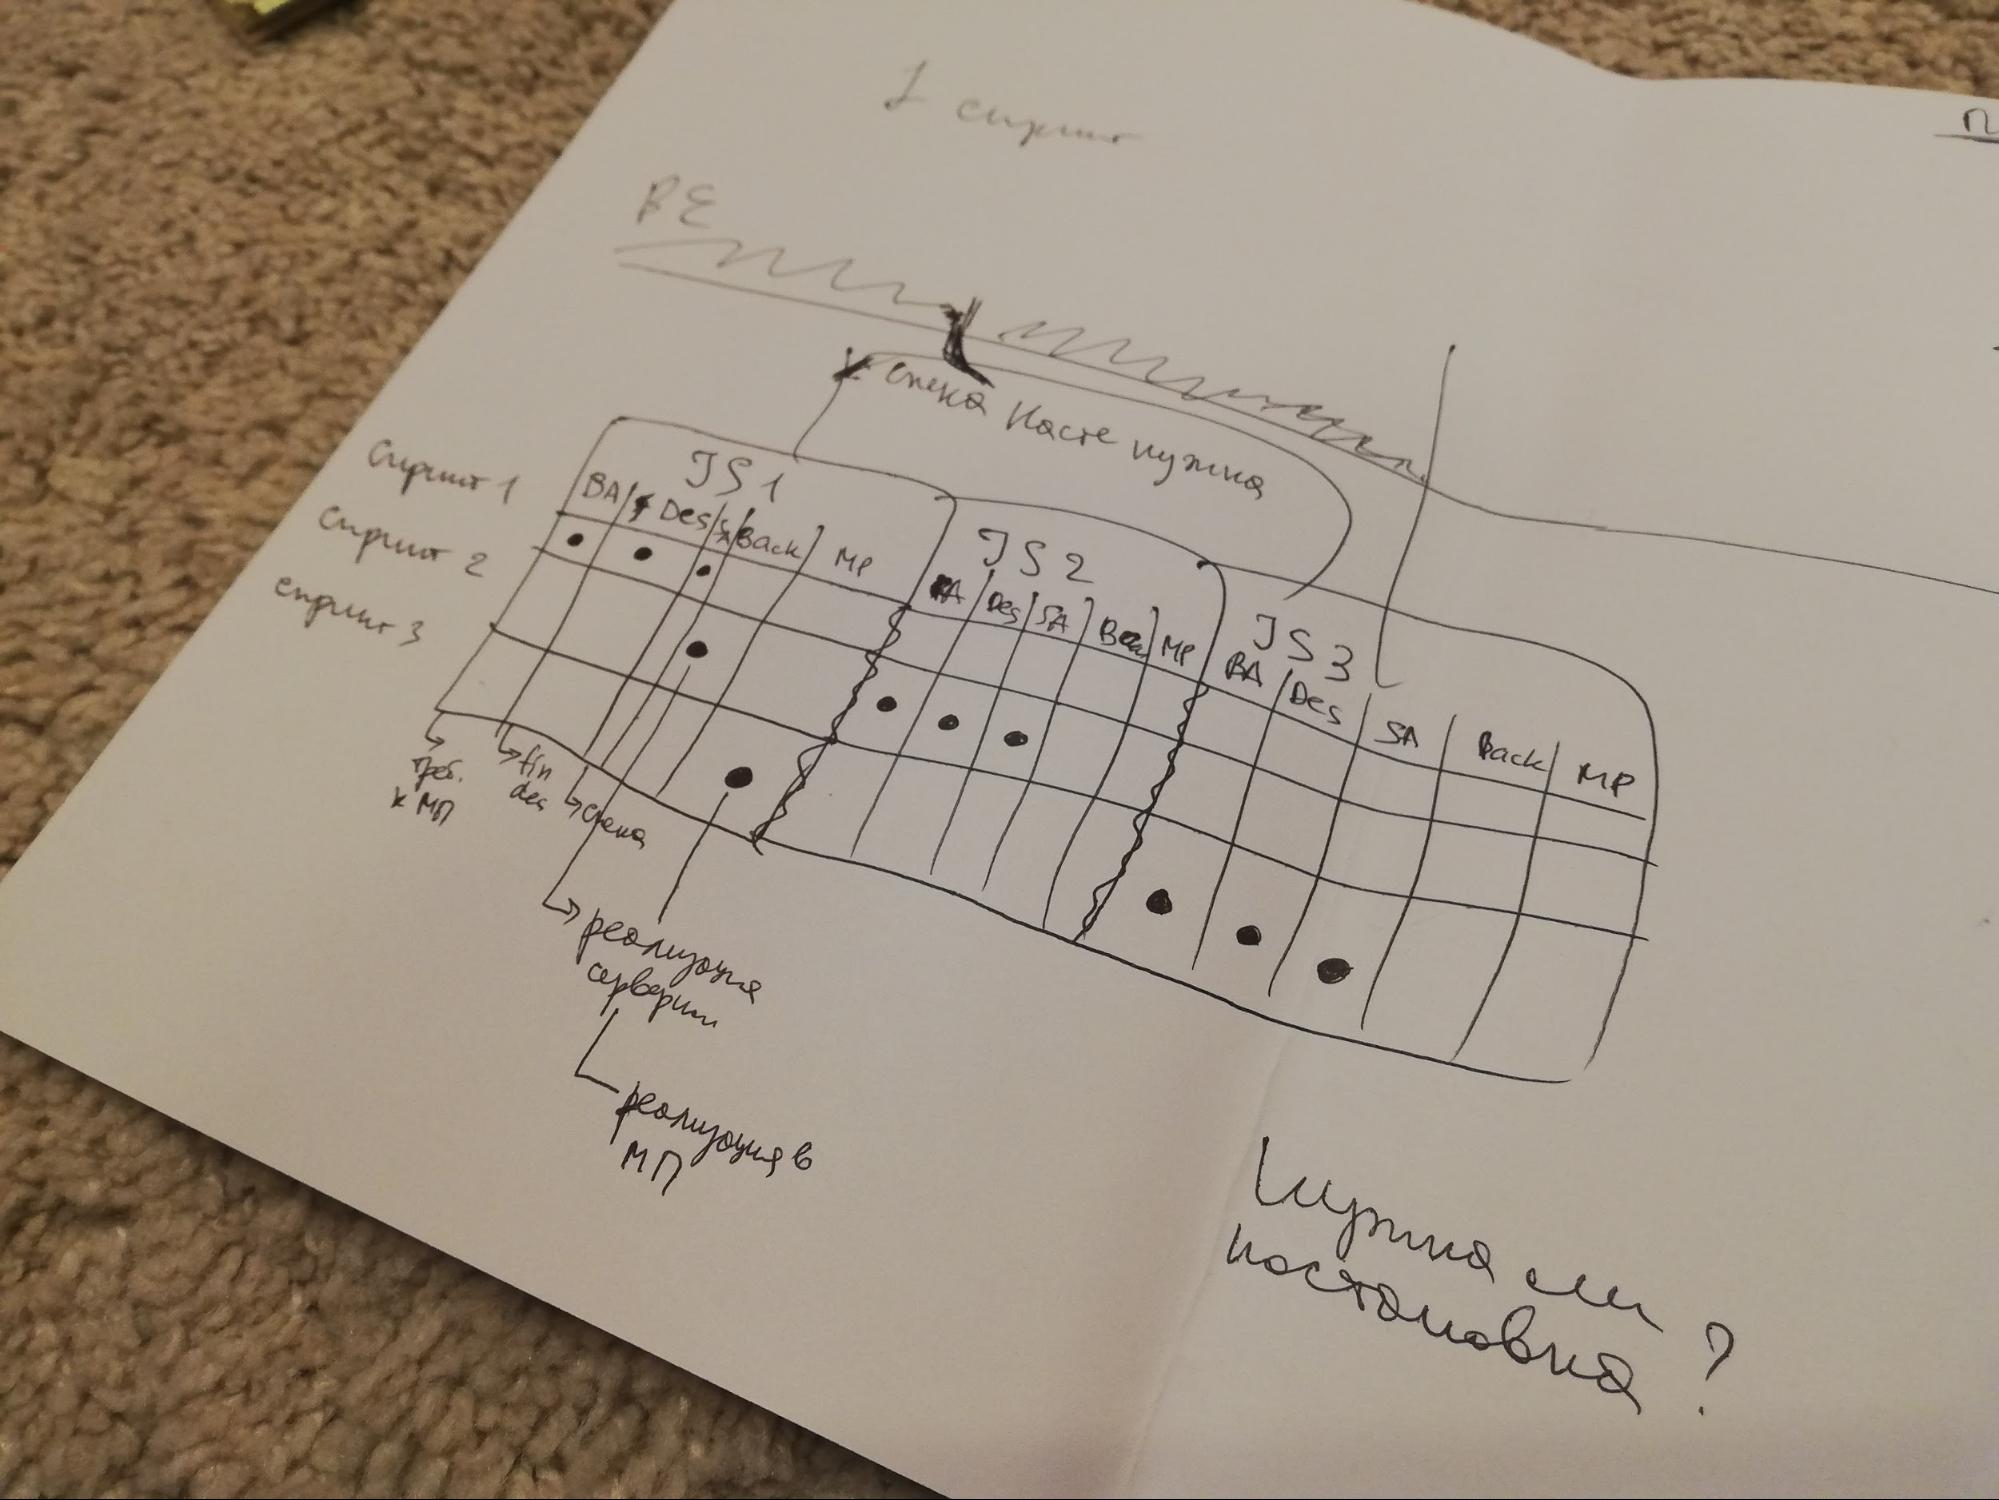 1 спринт
П
BE
спека Насте нужна
JS1
Спринт 1
BA Des SA Back MP
JS2
BA Des SA Back MP
JS3
BA Des SA Back MP
спринт 2
спринт 3
треб.
к МП
fin
des
спека
реализация
серверн
реализация в
МП
Нужна ли
постановка ?